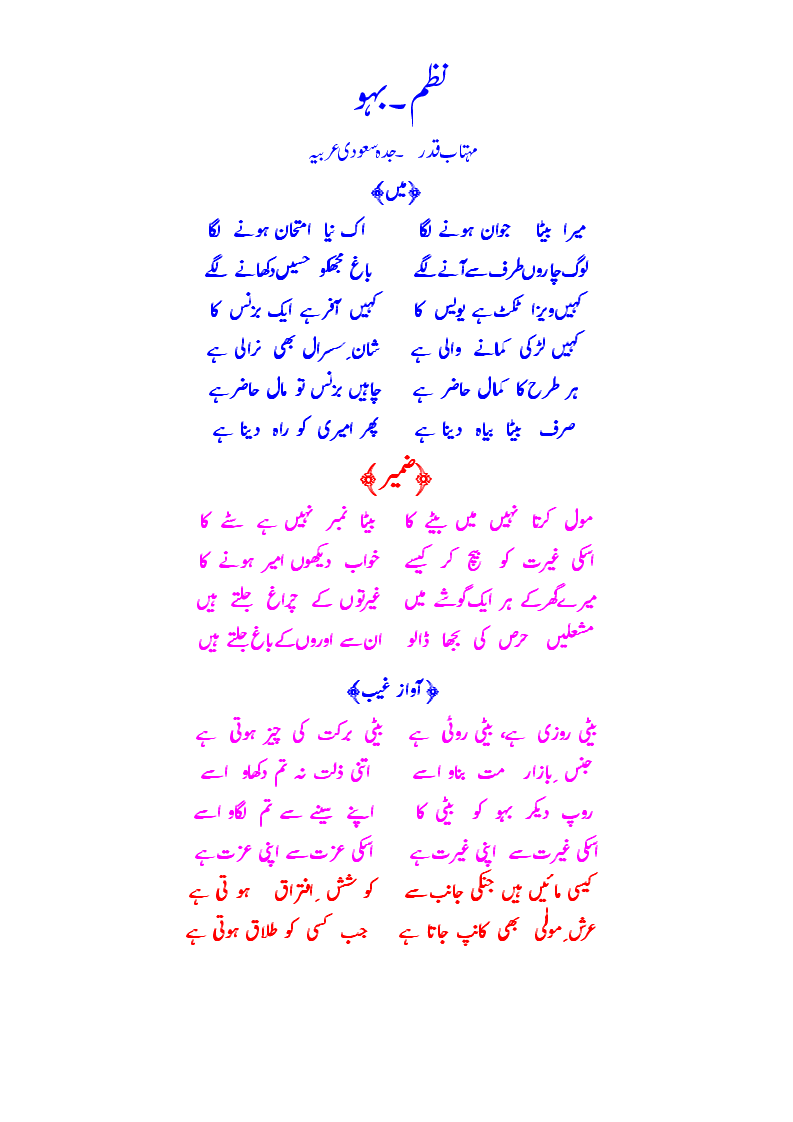 نظم ۔ بہو
مہتاب قدر ۔ جدہ سعودی عربیہ
﴿میں﴾
میرا بیٹا جوان ہونے لگا اک نیا امتحان ہونے لگا
لوگ چاروں طرف سے آنے لگے باغ مجھکو حسیں دکھانے لگے
کہیں ویزا ٹکٹ ہے یوایس کا کہیں آفر ہے ایک بزنس کا
کہیں لڑکی کمانے والی ہے شانِ سسرال بھی نرالی ہے
ہر طرح کا کمال حاضر ہے چاہیں بزنس تو مال حاضر ہے
صرف بیٹا بیاہ دینا ہے پھر امیری کو راہ دینا ہے
﴿ضمیر﴾
مول کرتا نہیں میں بیٹے کا بیٹا نمبر نہیں ہے سٹے کا
اسکی غیرت کو بیچ کر کیسے خواب دیکھوں امیر ہونے کا
میرے گھر کے ہر ایک گوشے میں غیرتوں کے چراغ جلتے ہیں
مشعلیں حرص کی بجھا ڈالو ان سے اوروں کے باغ جلتے ہیں
﴿آواز غیب﴾
بیٹی روزی ہے، بیٹی روٹی ہے بیٹی برکت کی چیز ہوتی ہے
جنسِ بازار مت بناو اسے اتنی ذلت نہ تم دکھاو اسے
روپ دیکر بہو کو بیٹی کا اپنے سینے سے تم لگاو اسے
اسکی غیرت سے اپنی غیرت ہے اسکی عزت سے اپنی عزت ہے
کیسی مائیں ہیں جنکی جانب سے کوششِ افتراق ہو تی ہے
عرشِ مولٰی بھی کانپ جاتا ہے جب کسی کو طلاق ہوتی ہے